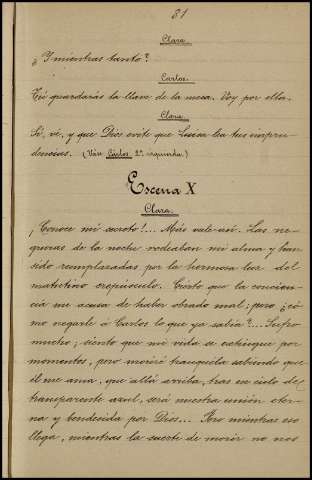 81
Clara.
¿Y mientras tanto?
Carlos.
Tú guardarás la llave de la mesa. Voy por ella.
Clara.
Sí, vé, y que Dios evite que Luisa lea tus impru-
dencias. (Váse Carlos 2ª izquierda.)
Escena X
Clara.
¡Conoce mi secreto!... Más vale así. Las ne-
gruras de la noche rodeaban mi alma y han
sido remplazadas por la hermosa luz del
matutino crepúsculo. Cierto que la concien-
cia me acusa de haber obrado mal; pero ¿có-
mo negarle á Carlos lo que ya sabía?... Sufro
mucho; siento que mi vida se extingue por
momentos, pero moriré tranquila sabiendo que
él me ama, que allá arriba, tras un cielo de
transparente azul, será nuestra unión eter-
na y bendecida por Dios... Pero mientras eso
llega, mientras la suerte de morir no nos